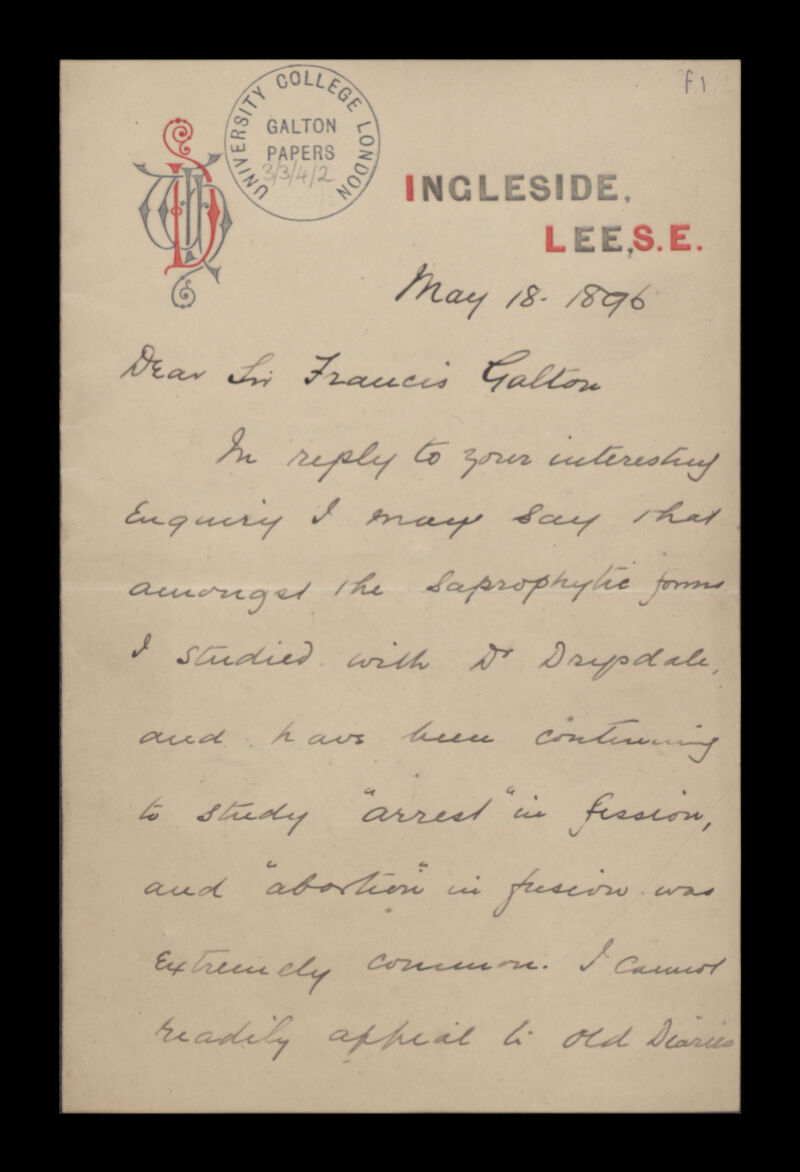 f.1
UNIVERSITY COLLEGE LONDON
GALTON
PAPERS
3/3/4/2
INGLESIDE,
LEE, S.E.
May 18. 1896
Dear Sir Francis Galton
In reply to your interesting
Enquiry I may say that
amongst the Saprophytic forms
I studied with Dr Drysdale,
and have been continuing
to study "arrest" in fission,
and "abortion" in fusion was
Extremely common. I cannot
readily appeal to old Diaries